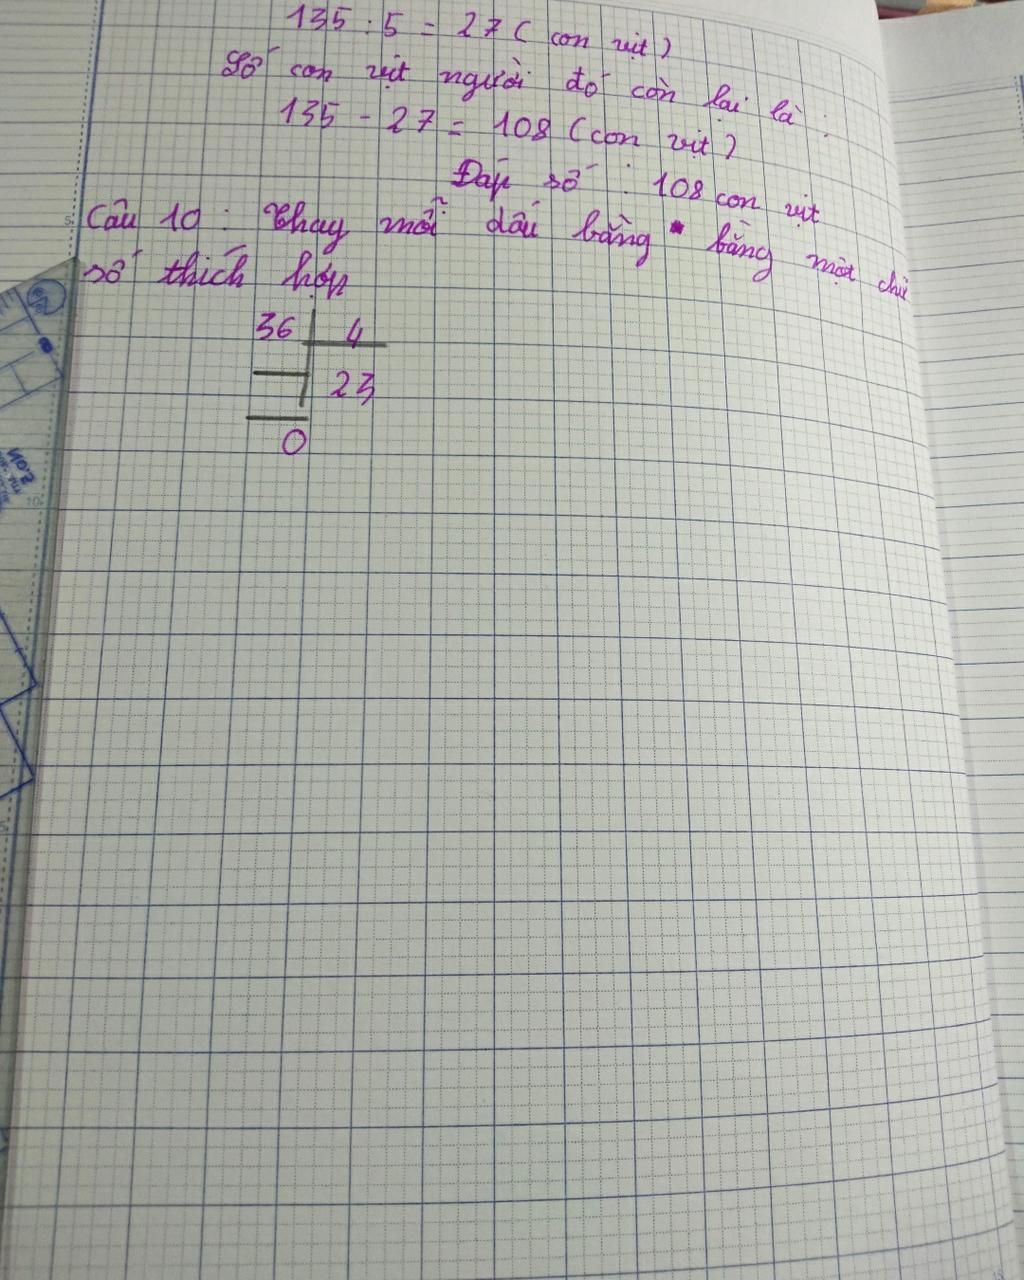 135 : 5 = 27 ( con vịt )
Số con vịt người đó còn lại là :
135 - 27 = 108 ( con vịt )
Đáp số : 108 con vịt
Câu 10 : Thay mỗi dấu bằng * bằng một chữ
số thích hợp
36 4
23
0